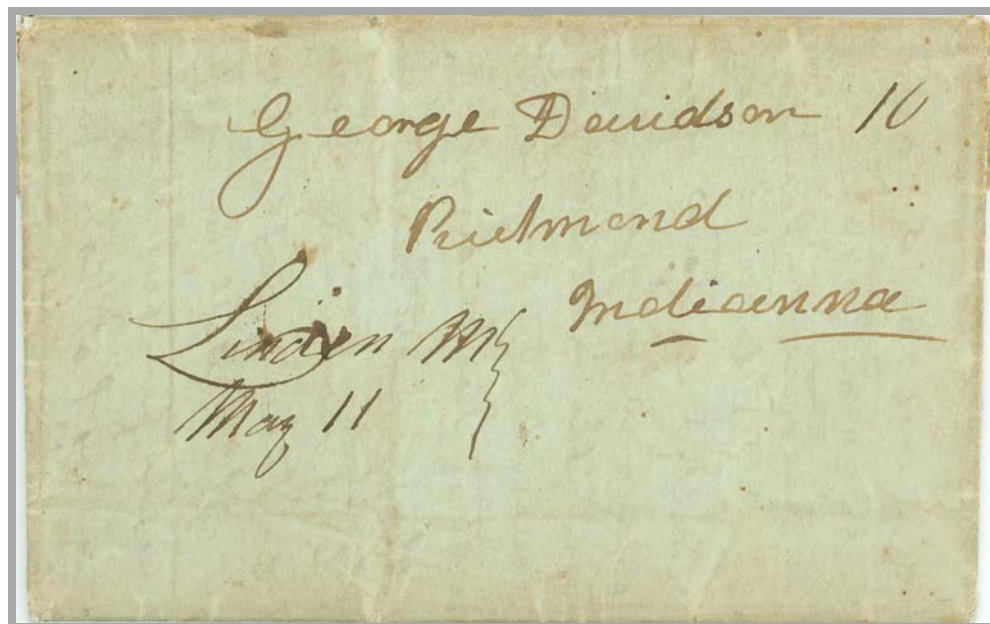 George Davidson 10
Richmond
Indianna
Linden
May 11